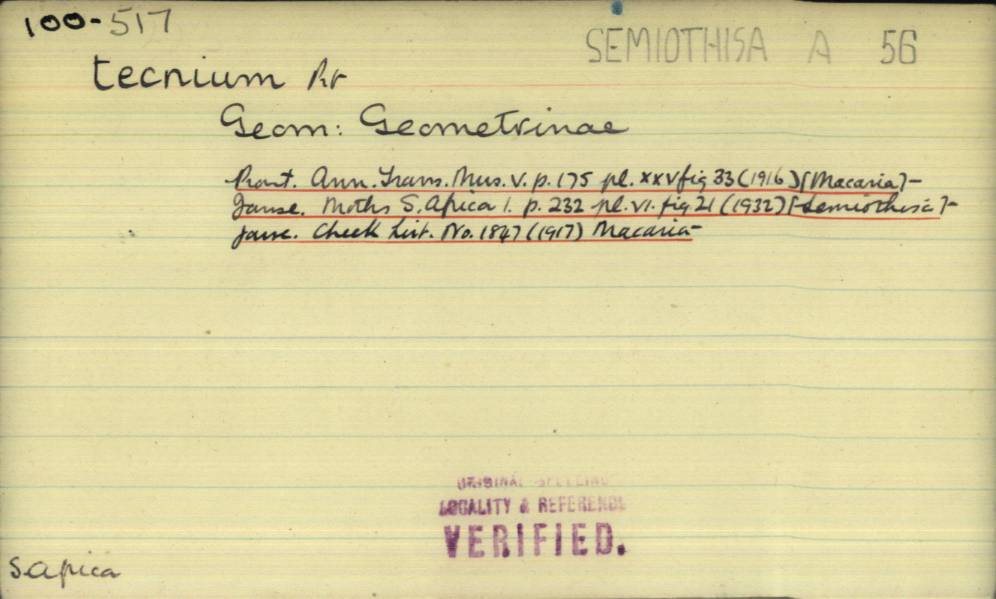 100-517
SEMIOTHISA A 56
tecnium Prt
Geom: Geometrinae
Prout. Ann. Trans. Mus. V. p. 175 pl. xxv fig 33 (1916) [Macaria] -
Janse. Moths S. Africa 1. p. 232 pl. VI. fig 21 (1932) [Semiothisa] -
Janse. Check List. No. 1847 (1917) Macaria -
ORIGINAL SPELLING
LOCALITY & REFERENCE
VERIFIED.
S Africa